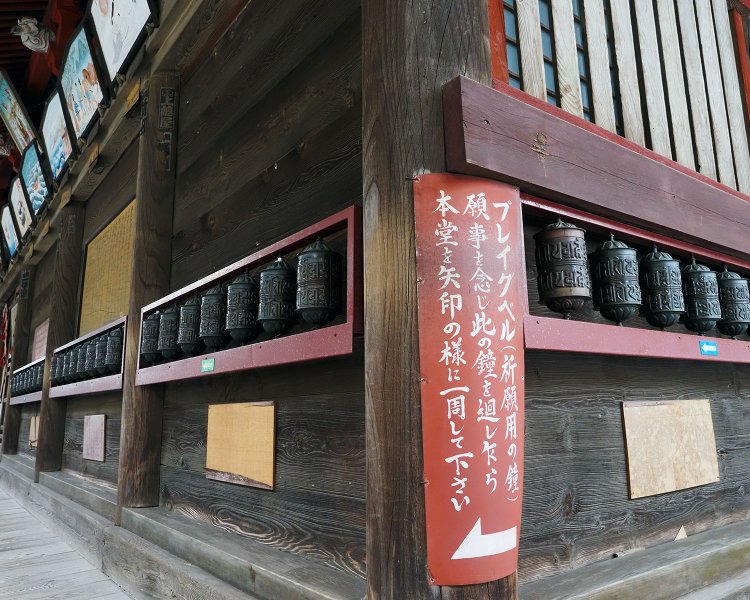 プレイグベル(祈願用の鐘)
願事を念じ此の鐘を廻し乍ら
本堂を矢印の様に一周して下さい